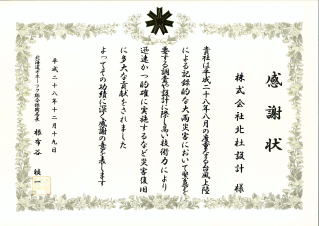 感謝状
株式会社北杜設計 様
貴社は平成二十八年八月の度重なる台風上陸
による記録的な大雨災害において緊急を
要する調査や設計に際し高い技術力により
迅速かつ的確に実施するなど災害復旧
に多大な貢献をされました
よってその功績に深く感謝の意を表します
平成二十八年十二月十九日
北海道オホーツク総合振興局長 根布谷 禎一